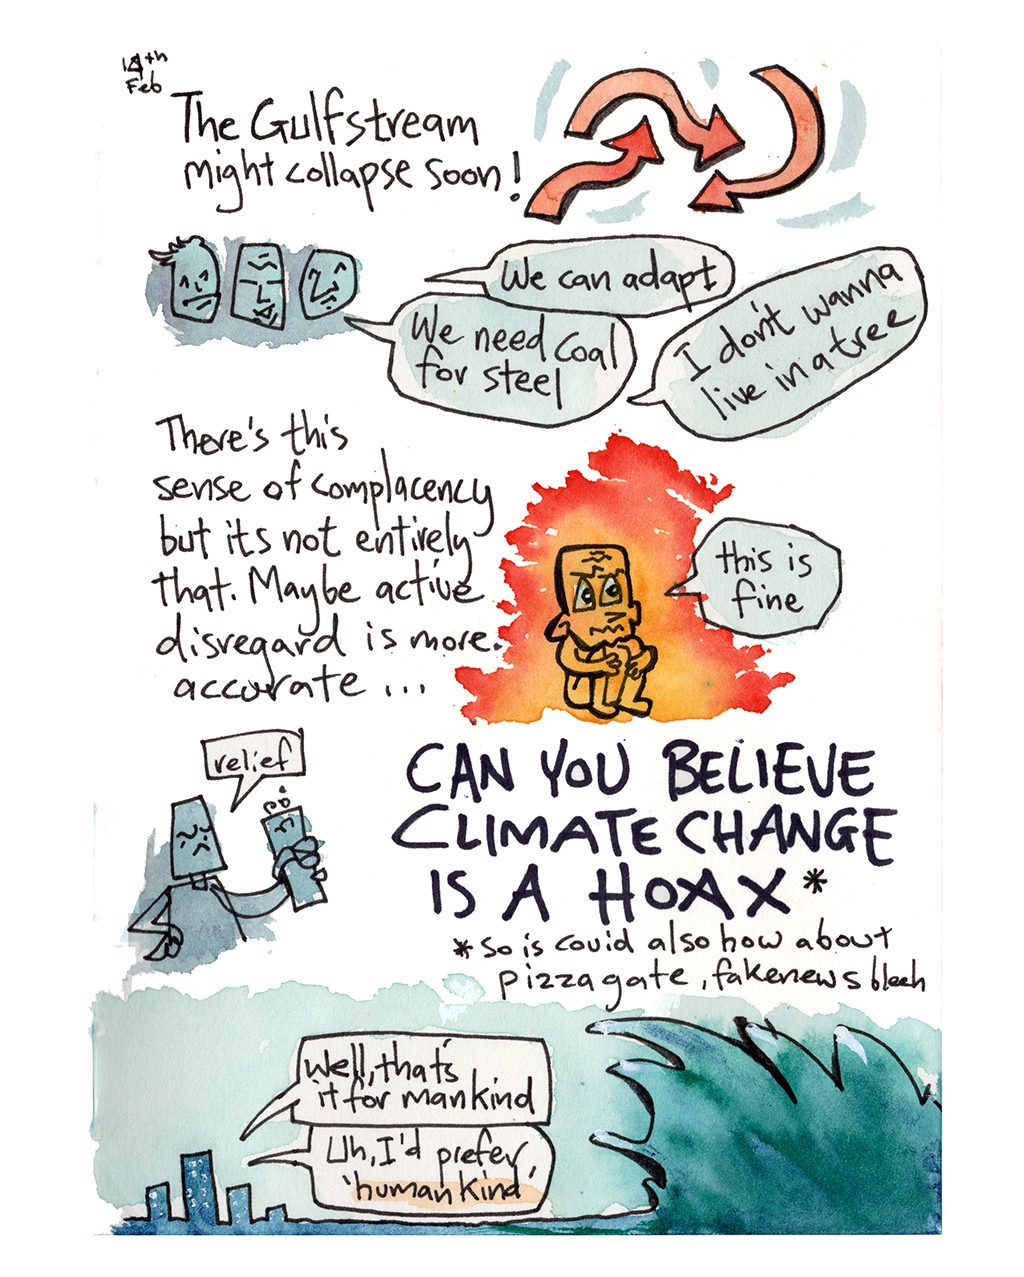 14th
Feb
The Gulfstream
might collapse soon!
We can adapt
We need coal
for steel
I don't wanna
live in a tree
There's this
sense of complacency
but its not entirely
that. Maybe active
disregard is more.
accurate ...
this is
fine
relief
CAN YOU BELIEVE
CLIMATE CHANGE
IS A HOAX*
*So is covid also how about
pizzagate, fakenews bleeh
Well, that's
it for mankind
Uh, I'd prefer
'humankind'